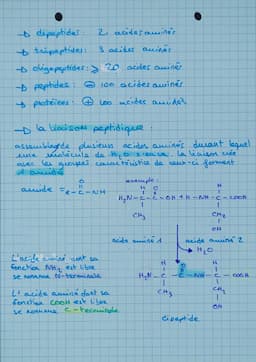 → dipeptides : 2 acides aminés
→ tripeptides : 3 acides aminés
→ oligopeptides : > 20 acides aminés
→ peptides : ⊖ 100 acides aminés
→ protéines : ⊕ 100 acides aminés
→ la liaison peptidique
assemblage de plusieurs acides aminés durant lequel
une molécule de H2O. la liaison crée
avec les groupes caractéristiques de ceux-ci forment
1 amide
exemple :
amide = R-C-NH
O
H O H
H2N-C-C-OH + H-NH-C-COOH
CH3 CH2
OH
acide aminé 1 acide aminé 2
→ H2O
L'acide aminé dont sa
fonction NH2 est libre
se nomme N-terminale
H O H
H2N-C-C-NH-C-COOH
CH3 CH2
OH
L'acide aminé dont sa
fonction COOH est libre
se nomme C-terminale
dipeptide